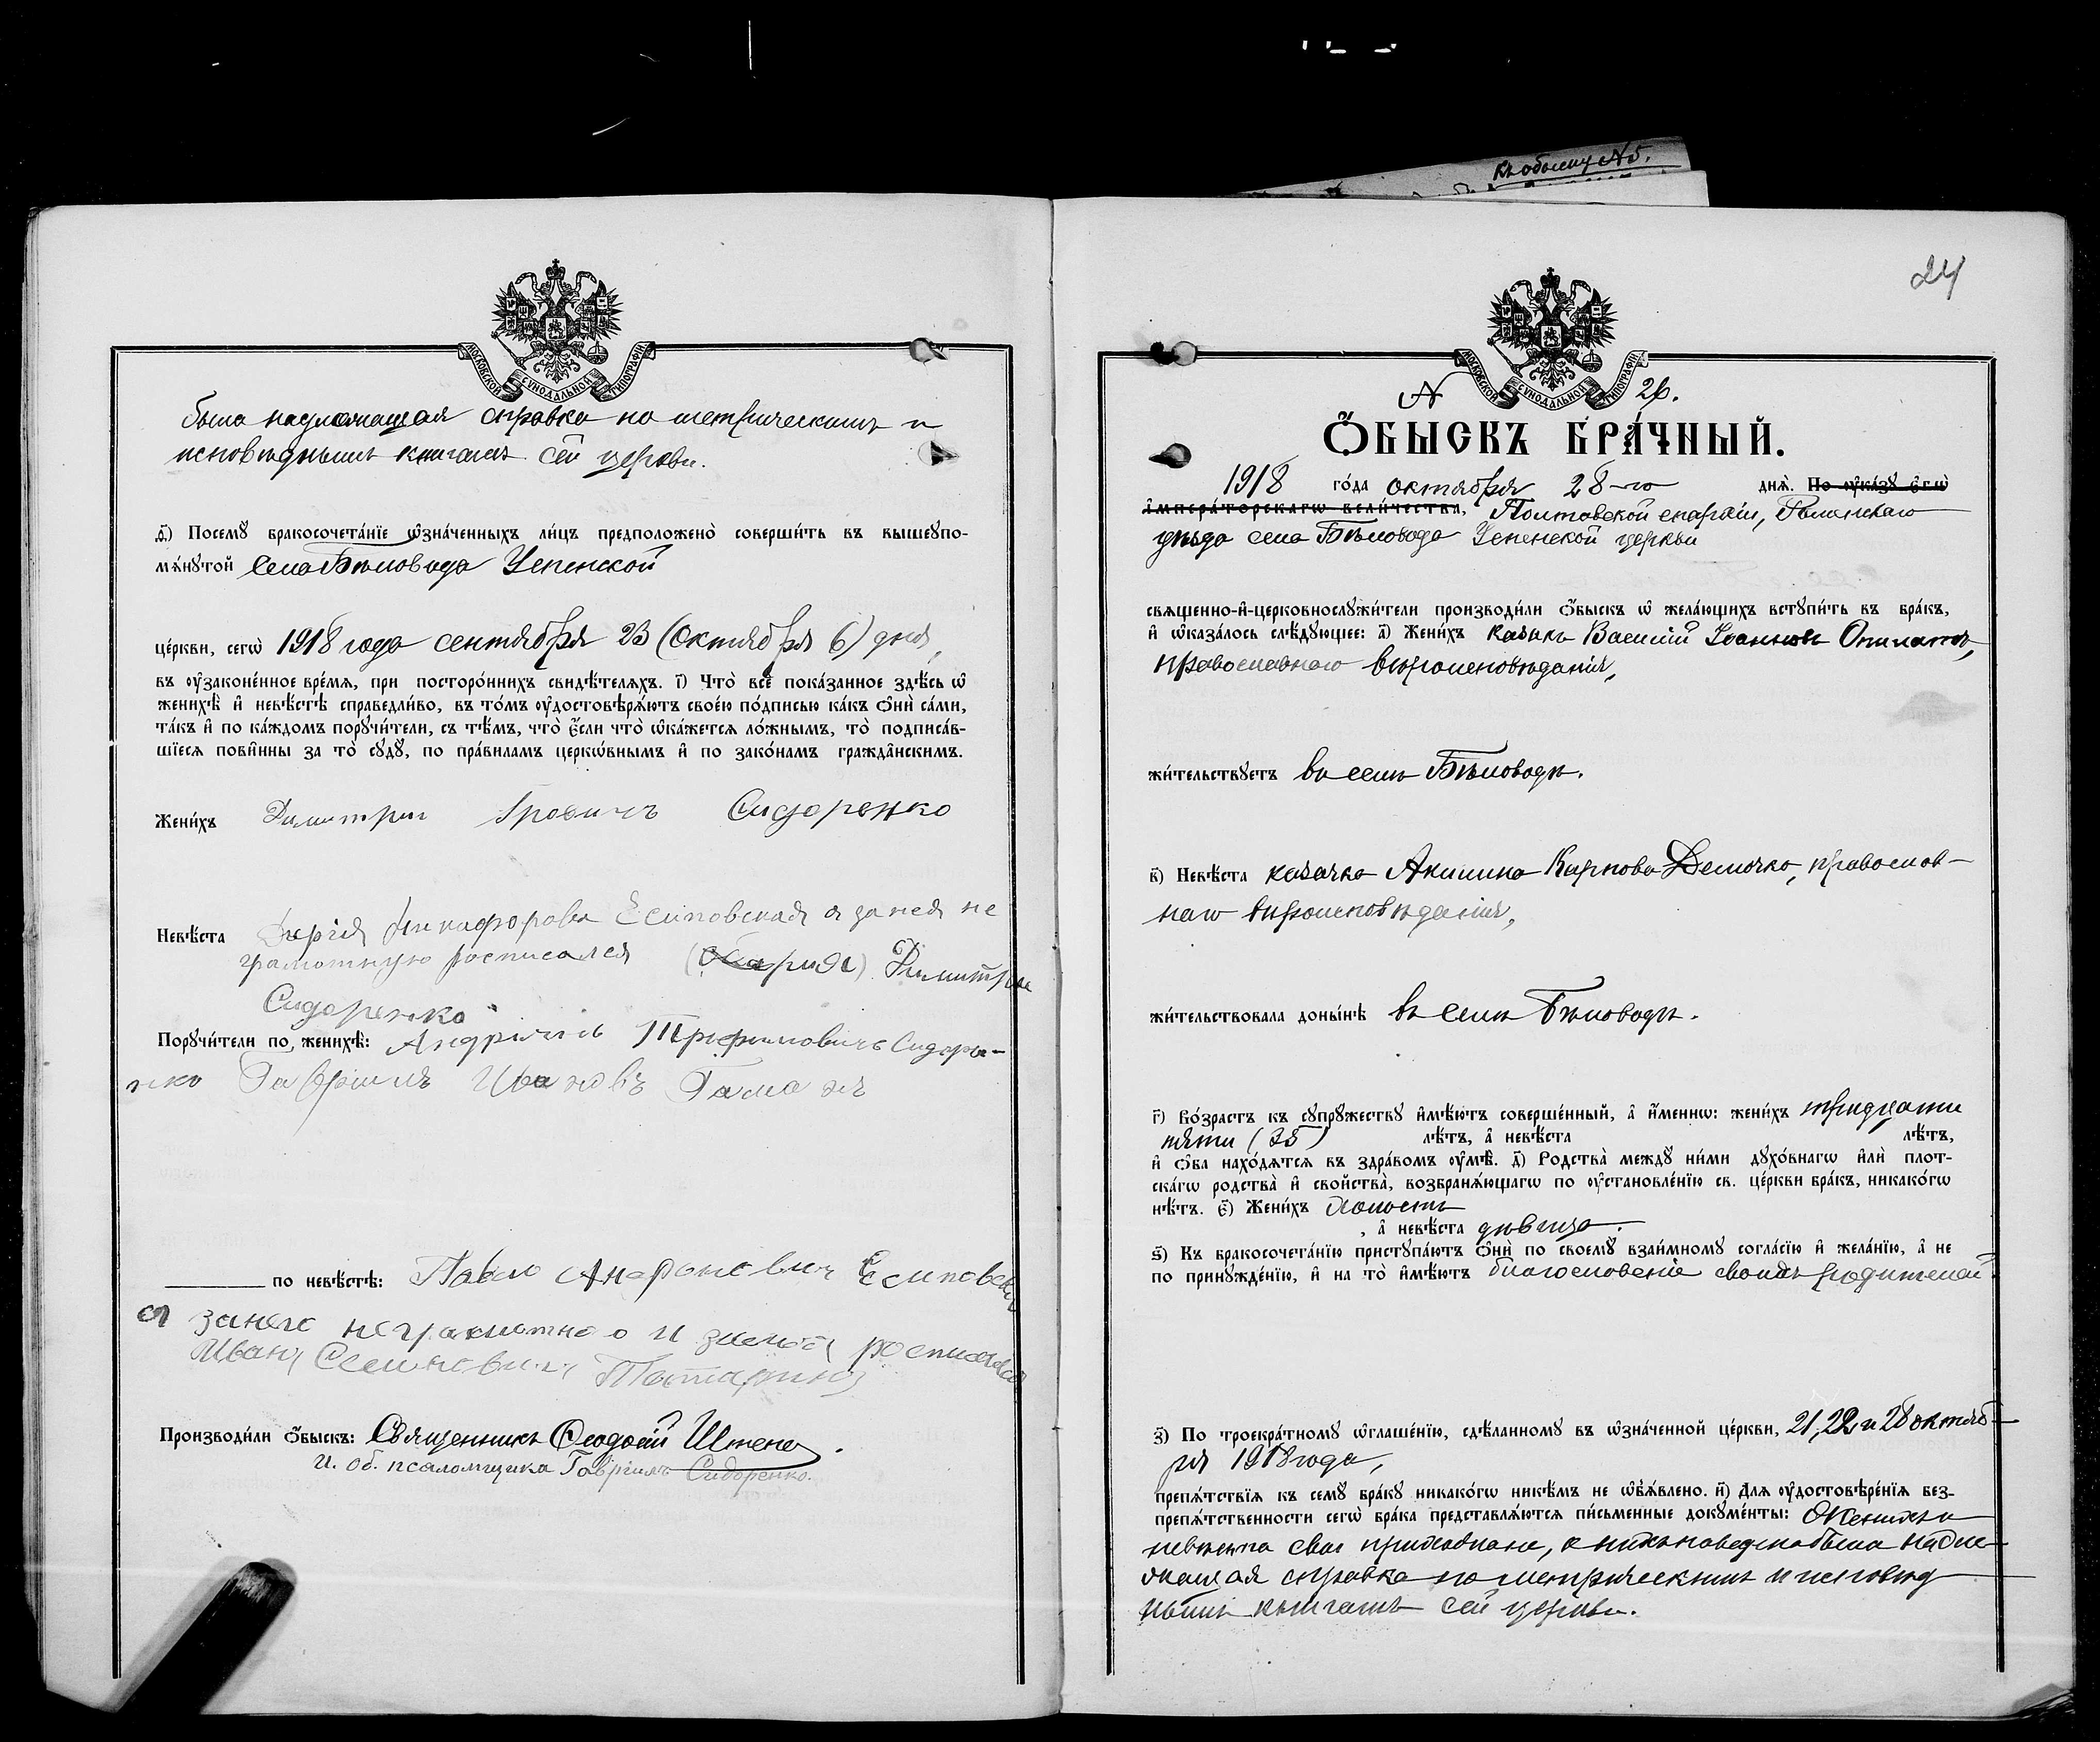 Къ обыску №5.
МОСКОВСКОЙ СѴНОДАЛЬНОЙ ТИПОГРАФІИ
была надлежащая справка по метрическимъ и
исповѣднымъ книгамъ сей церкви.
д҃.) Посемꙋ бракосочета́нїе ѡ҆зна́ченныхъ ли́цъ предположено̀ соверши́ть въ вышеꙋпо-
мѧ́нꙋтой села Бѣловода Успенской
це́ркви, сегѡ̀ 1918 года сентября 23 (октября 6) дня,
въ ᲂу҆зако́ненное вре́мѧ, при посторо́ннихъ свидѣ́телѧхъ. і҃) Что̀ всѐ пока́занное здѣ́сь ѡ҆
женихѣ̀ и҆ невѣ́стѣ справедли́во, въ то́мъ ᲂу҆достовѣрѧ́ютъ свое́ю по́дписью ка́къ ѻ҆нѝ са́ми,
та́къ и҆ по ка́ждомъ порꙋчи́тели, съ тѣ́мъ, что̀ є҆́сли что̀ ѡ҆ка́жетсѧ ло́жнымъ, то̀ подписа́в-
шїесѧ пови́нны за то̀ сꙋдꙋ̀, по пра́виламъ церкѡ́внымъ и҆ по зако́намъ гражда́нскимъ.
Жени́хъ Димитрий Сидоренко
Невѣ́ста Никифорова Есиповская а за нея не
грамотную росписался Димитрий
Сидоренко
Порꙋчи́тели по женихѣ̀: Трифиловичъ Сидоре-
нко Гавриилъ Ивановъ Гамалѣ
по невѣ́стѣ: Павло Есиповский
а за него неграмотного и росписался
Иванъ Семиновичъ
Производи́ли ѻ҆́быскъ: Священникъ Ѳеодосій
И. об. псаломщика Гавріилъ Сидоренко.
24
МОСКОВСКОЙ СѴНОДАЛЬНОЙ ТИПОГРАФІИ
№ 26.
Ѻ҆́БЫСКЪ БРА́ЧНЫЙ.
1918 го́да октября 28-го днѧ̀. По ᲂу҆ка́зꙋ є҆гѡ̀
и҆мпера́торскагѡ вели́чества, Полтавской епархіи, Роменскаго
уѣзда села Бѣловода Успенской церкви
свѧщенно-и҆-церковнослꙋжи́тели производи́ли ѻ҆́быскъ ѡ҆ жела́ющихъ встꙋпи́ть въ бра́къ,
и҆ ѡ҆каза́лось слѣ́дꙋющее: а҃) Жени́хъ казакъ Василій Іоанновъ
православнаго вѣроисповѣданія,
жи́тельствꙋетъ въ селѣ Бѣловодѣ.
в҃) Невѣ́ста казачка Акилина Карпова Демочко, православ-
наго вѣроисповѣданія,
жи́тельствовала доны́нѣ въ селѣ Бѣловодѣ.
г҃) Во́зрастъ къ сꙋпрꙋ́жествꙋ и҆мѣ́ютъ соверше́нный, а҆ и҆́менно: жени́хъ тридцати
пяти (35) лѣ́тъ, а҆ невѣ́ста лѣ́тъ,
и҆ ѻ҆́ба нахо́дѧтсѧ въ здра́вомъ ᲂу҆мѣ̀. д҃) Родства̀ междꙋ̀ ни́ми дꙋхо́внагѡ и҆лѝ плот-
ска́гѡ родства̀ и҆ сво́йства, возбранѧ́ющагѡ по ᲂу҆становле́нїю св. це́ркви бра́къ, никако́гѡ
нѣ́тъ. є҃) Жени́хъ холостъ
, а҆ невѣ́ста дѣвица.
ѕ҃) Къ бракосочета́нїю пристꙋпа́ютъ ѻ҆нѝ по своемꙋ̀ взаи́мномꙋ согла́сїю и҆ жела́нїю, а҆ не
по принꙋжде́нїю, и҆ на то̀ и҆мѣ́ютъ благословеніе своихъ родителей
з҃) По троекра́тномꙋ ѡ҆глаше́нїю, сдѣ́ланномꙋ въ ѡ҆зна́ченной це́ркви, 21, 22 и 28 октяб-
ря 1918 года,
препѧ́тствїѧ къ семꙋ̀ бра́кꙋ никако́гѡ никѣ́мъ не ѡ҆б̾ѧ́влено. и҃) Длѧ ᲂу҆достовѣре́нїѧ без-
препѧ́тственности сегѡ̀ бра́ка представлѧ́ютсѧ пи́сьменные докꙋме́нты: Женихъ и
невѣста свои прихожане, о нихъ наведена была надле-
жащая справка по метрическимъ и исповѣд
нымъ книгамъ сей церкви.